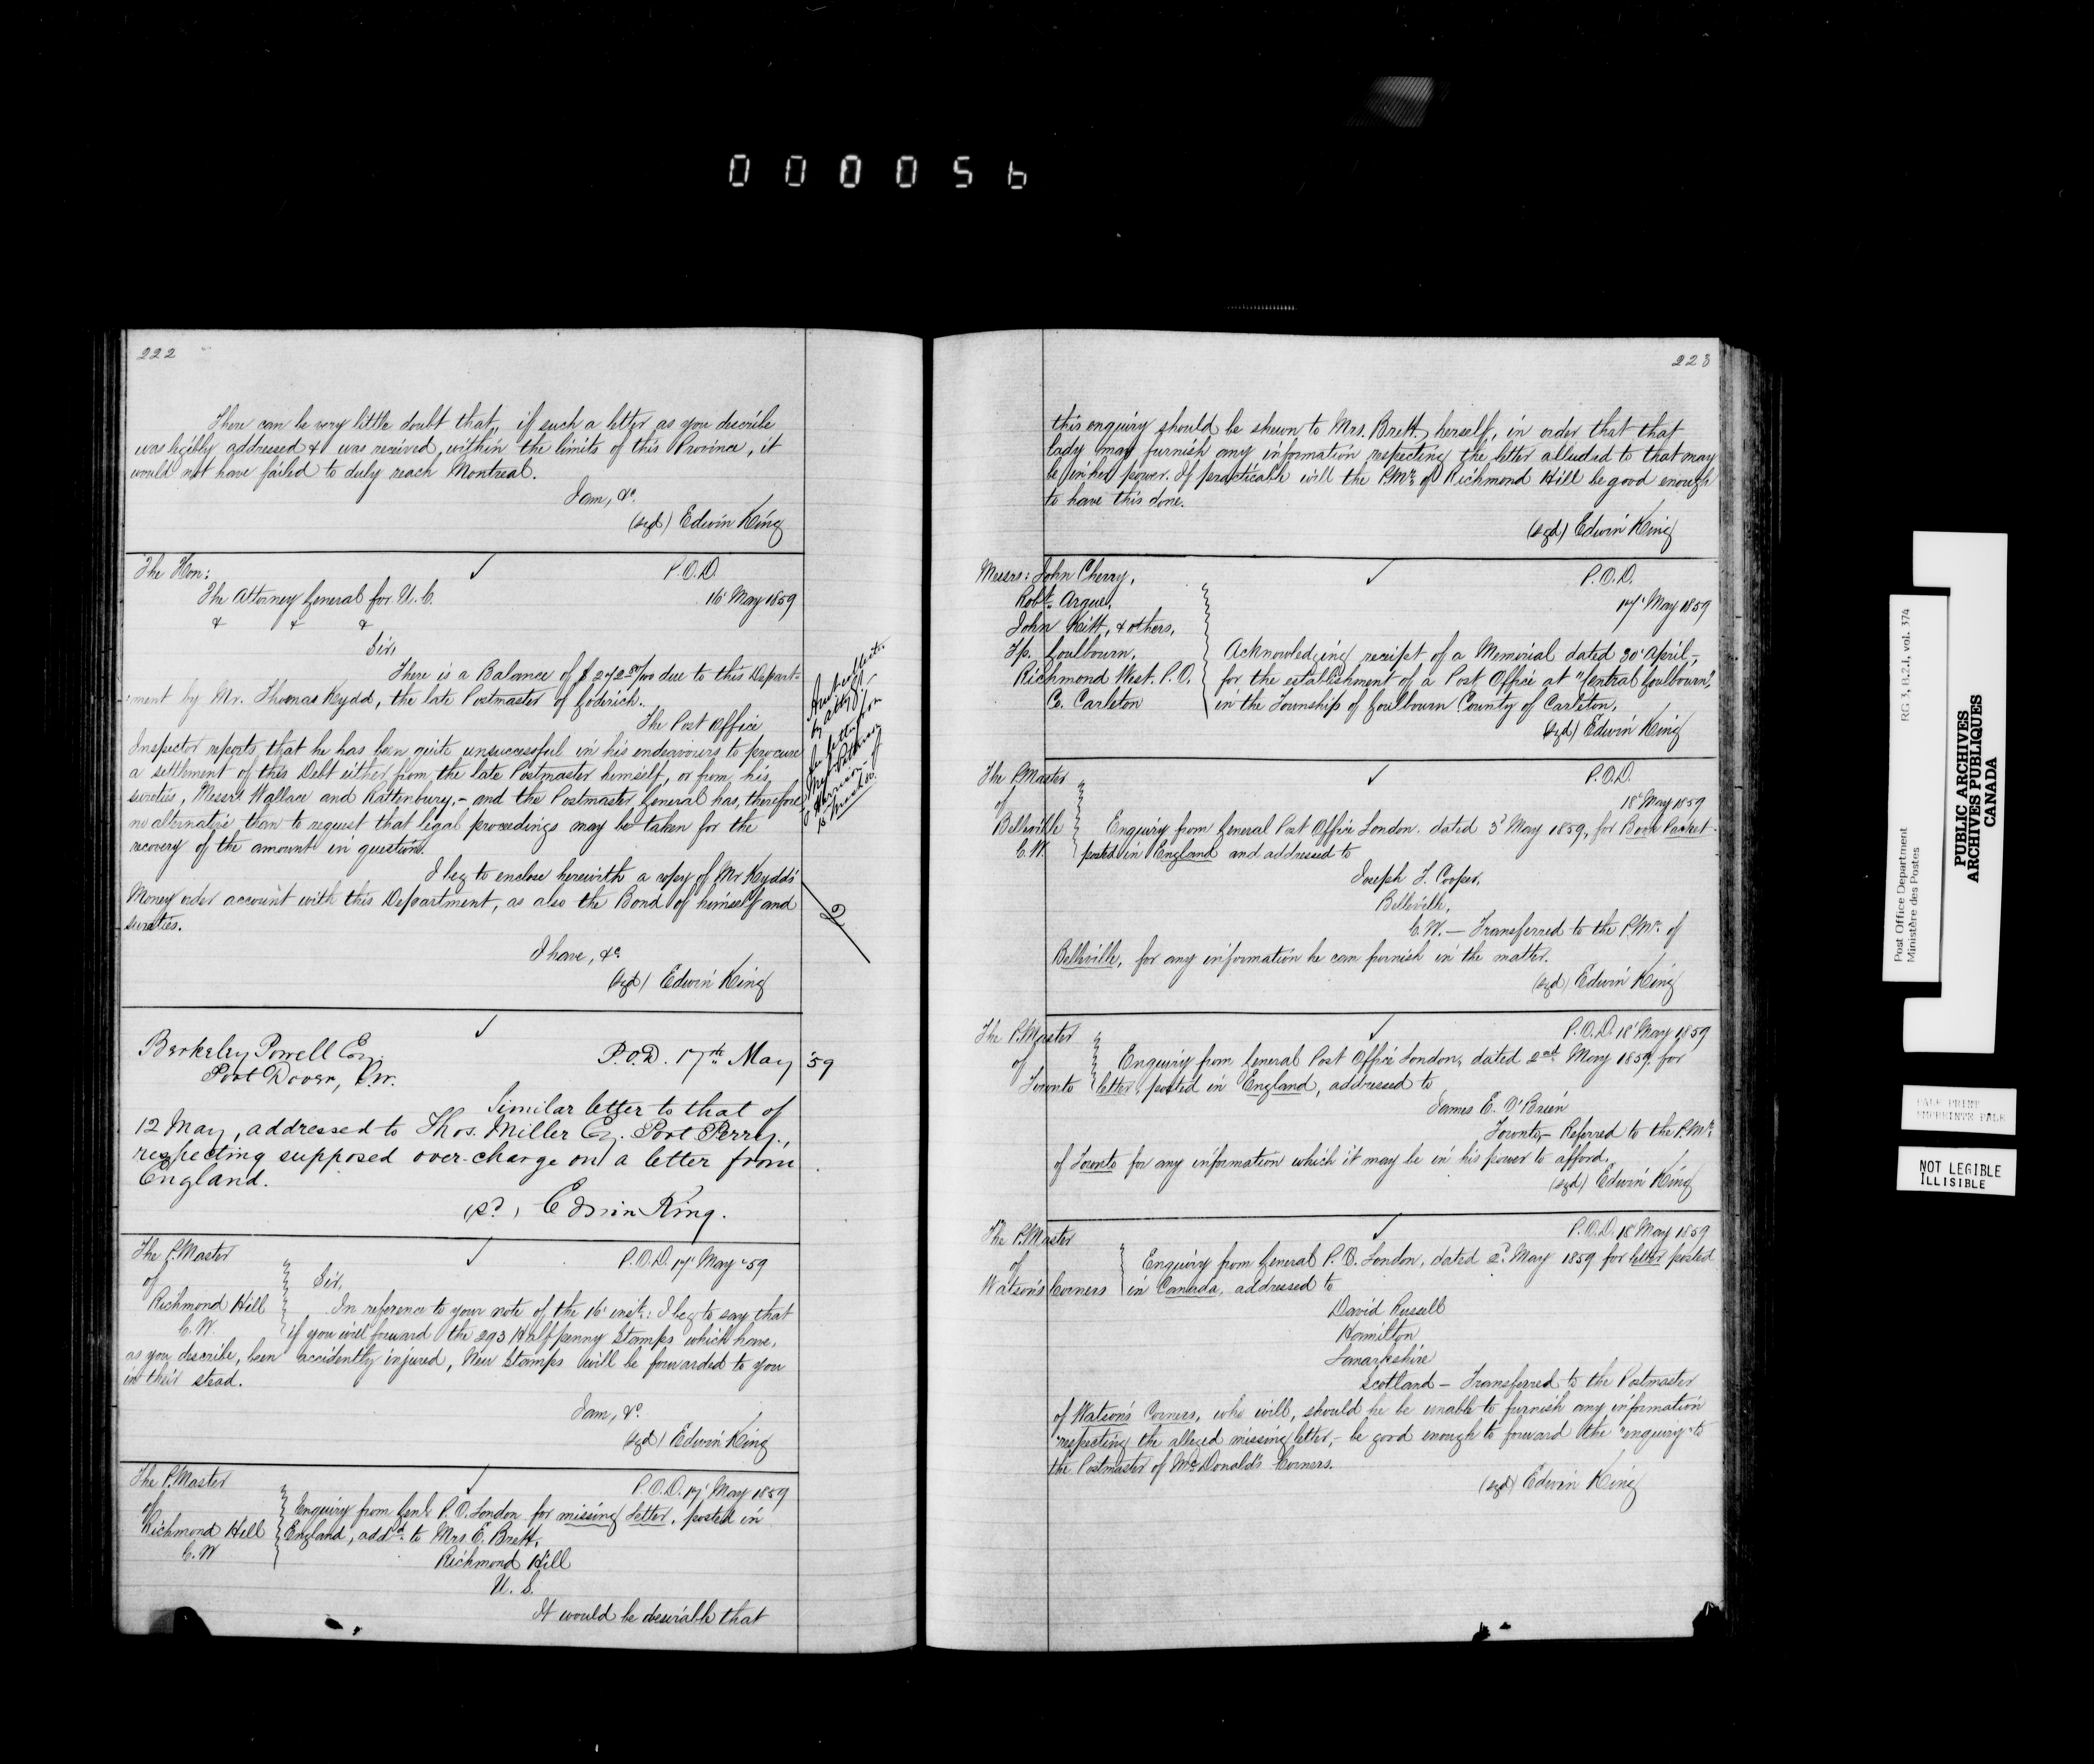 0000056
222
There can be very little doubt that, if such a letter as you describe
was legibly addressed & was received, within the limits of this Province, it
would not have failed to duly reach Montreal.
I am, &c.
(sgd) Edwin King
The Hon:
P.O.D.
The Attorney General for U.C.
16' May 1859
& & &
Sir,
There is a Balance of $ due to this Depart-
-ment by Mr. Thomas Kydd, the late Postmaster of Goderich.
The Post Office
Inspector reports, that he has been quite unsuccessful in his endeavours to procure
a settlement of this Debt either from the late Postmaster himself, or from his
sureties, Messrs Wallace and Rattenbury, - and the Postmaster General has, therefore
no alternative than to request that legal proceedings may be taken for the
recovery of the amount in question.
I beg to enclose herewith a copy of Mr Kydd's
Money order account with this Department, as also the Bond of himself and
sureties.
I have, &c
(sgd) Edwin King
Berkeley Powell Esq.
P.O.D. 17th May '59
Port Dover, C.W.
Similar letter to that of
12 May, addressed to Thos. Miller Esq. Port Perry,
respecting supposed over-charge on a letter from
England.
(sd) Edwin King.
The P.Master
P.O.D. 17' May '59
of
Richmond Hill
C.W.
Sir,
In reference to your note of the 16' inst: I beg to say that
if you will forward the 293 Half penny Stamps which have,
as you describe, been accidently injured, New Stamps will be forwarded to you
in their stead.
I am, &c.
(sgd) Edwin King
The P.Master
P.O.D. 17' May 1859
of
Richmond Hill
C.W
Enquiry from Genl P.O. London for missing letter, posted in
England, addd to Mrs E. Brett,
Richmond Hill
U.S.
It would be desirable that
223
this enquiry should be shewn to Mrs. Brett, herself, in order that that
lady may furnish any information respecting the letter alluded to that may
be in her power. If practicable will the P.Mr. of Richmond Hill be good enough
to have this done.
(sgd) Edwin King
Messrs: John Cherry,
P.O.D.
Robt. Argue,
17' May 1859
John Kitt, & others,
Tp. Goulbourn,
Richmond West. P.O.
Co. Carleton
Acknowledging receipt of a Memorial dated 30' April,
for the establishment of a Post Office at "Central Goulbourn",
in the Township of Goulbourn County of Carleton.
(sgd) Edwin King
The P.Master
P.O.D.
of
18' May 1859
Belleville
C.W.
Enquiry from General Post Office London. dated 3d May 1859, for Book Packet
posted in England and addressed to
Joseph T. Cooper,
Belleville,
C.W. — Transferred to the P.Mr. of
Belleville, for any information he can furnish in the matter.
(sgd) Edwin King
The P.Master
P.O.D. 18' May 1859
of
Toronto
Enquiry from General Post Office London, dated 2nd May 1859, for
letter, posted in England, addressed to
James E. O'Brien
Toronto — Referred to the P.Mr.
of Toronto for any information which it may be in his power to afford.
(sgd) Edwin King
The P.Master
P.O.D. 18' May 1859
of
Watson's Corners
Enquiry from General P.O. London, dated 2d May 1859 for letter posted
in Canada, addressed to
David Russell
Hamilton
Lanarkshire
Scotland — Transferred to the Postmaster
of Watson's Corners, who will, should he be unable to furnish any information
respecting the alleged missing letter, - be good enough to forward the "enquiry" to
the Postmaster of McDonald's Corners.
(sgd) Edwin King
Post Office Department
Ministère des Postes
RG 3, B.2.I, vol. 374
PUBLIC ARCHIVES
ARCHIVES PUBLIQUES
CANADA
PALE PRINT
IMPRIMÉ PALE
NOT LEGIBLE
ILLISIBLE